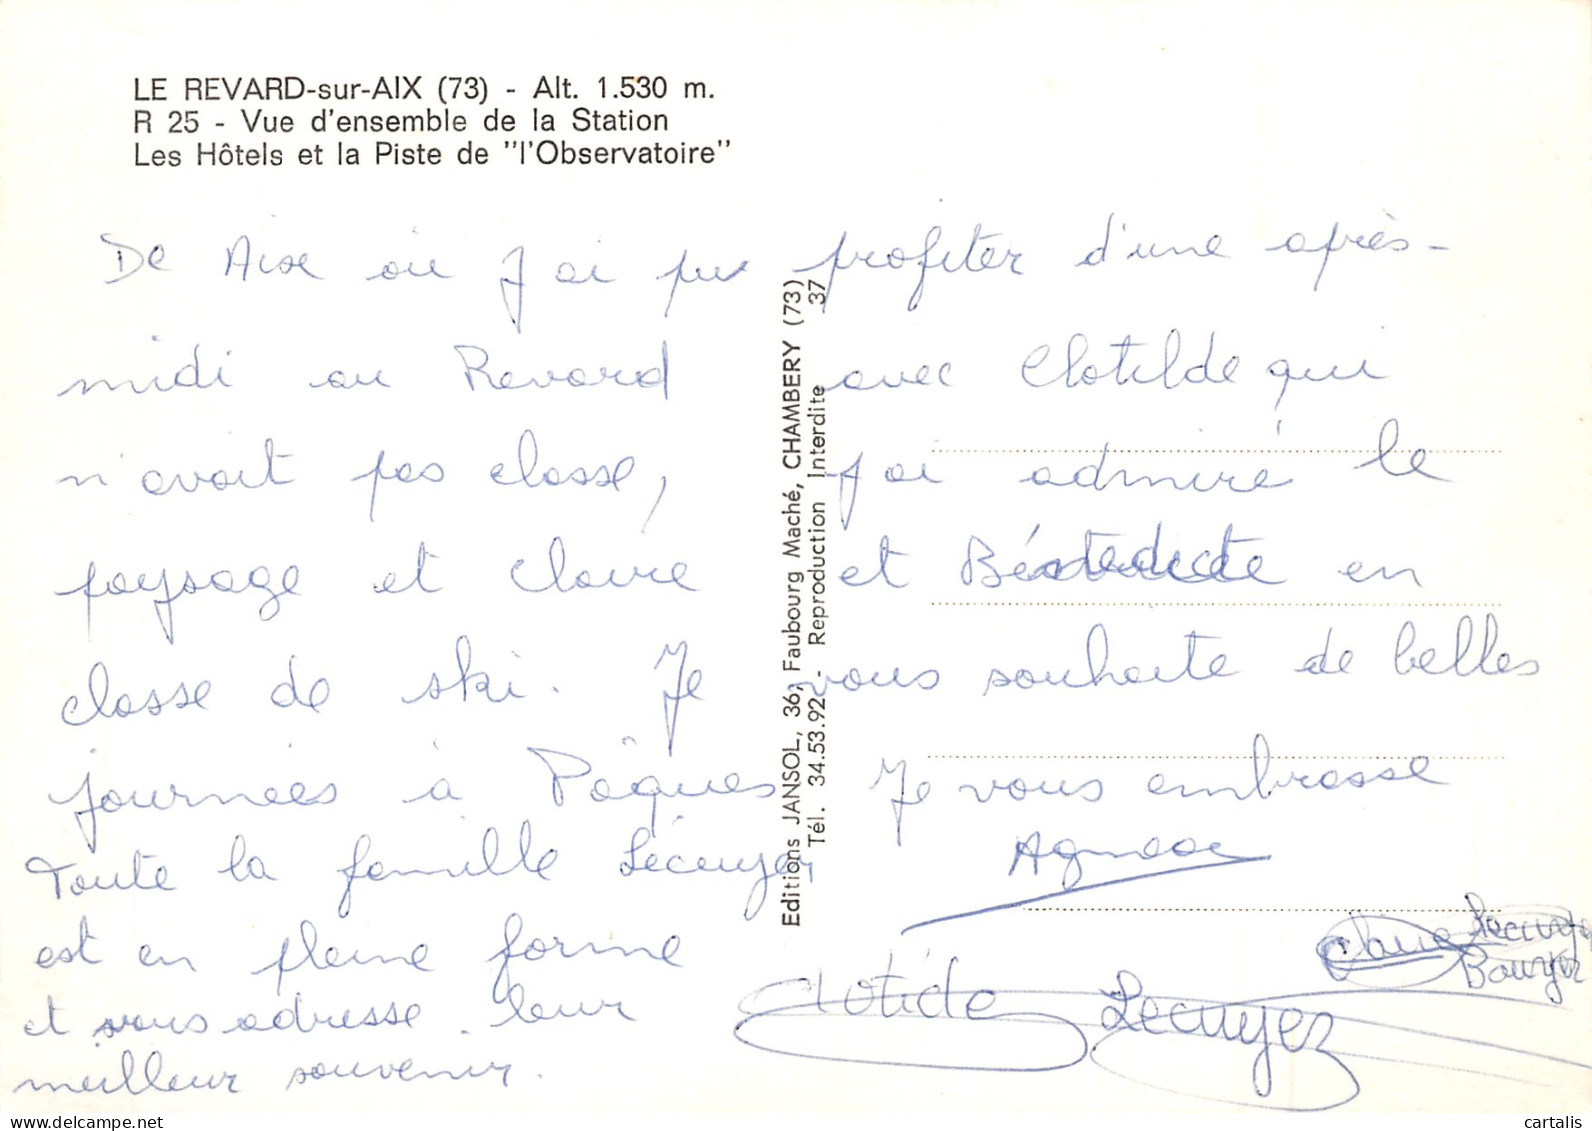 LE REVARD-sur-AIX (73) - Alt. 1.530 m.
R 25 - Vue d'ensemble de la Station
Les Hôtels et la Piste de "l'Observatoire"
De Aix où j'ai pu profiter d'une après-
midi au Revard avec Clotilde qui
n'avait pas classe, j'ai admiré le
paysage et Claire et Bénédicte en
classe de ski. Je vous souhaite de belles
journées à Pâques Je vous embrasse
Agnès
Toute la famille Lécuyer
est en pleine forme
et vous adresse leur
meilleur souvenir.
Clotilde Lecuyer
Claire Lecuyer
Bouyer
Editions JANSOL, 36, Faubourg Maché, CHAMBERY (73)
Tél. 34.53.92 - Reproduction Interdite 37
cartalis